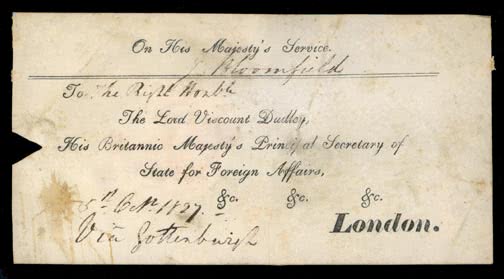 On His Majesty's Service.
Bloomfield
To The Right Honble
The Lord Viscount Dudley,
His Britannic Majesty's Principal Secretary of
State for Foreign Affairs,
&c. &c. &c.
London.
5th Octr. 1827.
Via Gottenburgh